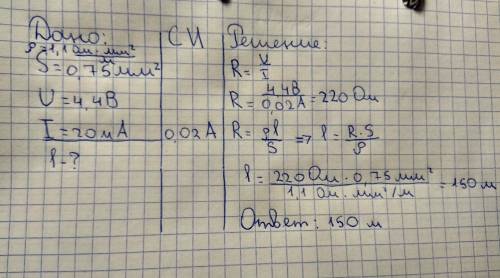 Дано:
ρ=1,1 Ом·мм²/м
S=0,75мм²
U=4,4В
I=20мА
l-?
СИ
0,02А
Решение:
R=U/I
R=4,4В/0,02А=220 Ом
R=ρl/S => l=R·S/ρ
l=220 Ом·0,75мм²/1,1 Ом·мм²/м=150м
Ответ: 150 м